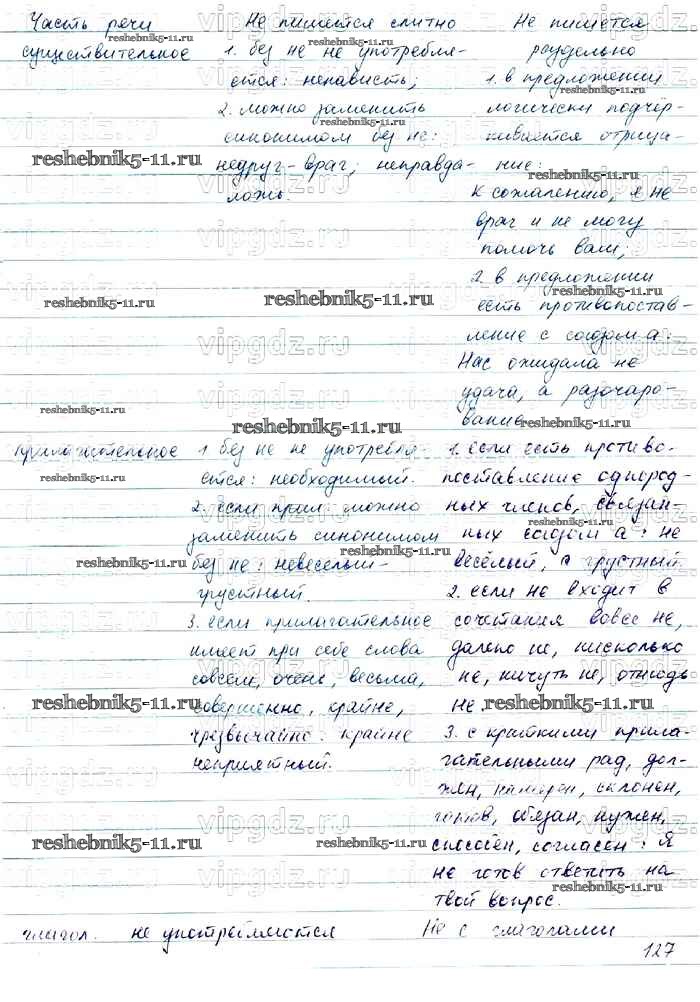 Часть речи Не пишется слитно Не пишется
существительное 1. без не не употребля- раздельно
ется: ненависть; 1. в предложении
2. можно заменить логически подчёр-
синонимом без не: кивается отрица-
недруг - враг; неправда - ние:
ложь. К сожалению, я не
враг и не могу
помочь вам;
2. в предложении
есть противопостав-
ление с союзом а:
Нас ожидала не
удача, а разочаро-
вание
прилагательное 1 без не не употребля- 1. если есть противо-
ется: необходимый. поставление однород-
2. если прил. можно ных членов, связан-
заменить синонимом ных союзом а: не
без не: невеселый - весёлый, а грустный
грустный. 2. если не входит в
3. если прилагательное сочетания вовсе не,
имеет при себе слова далеко не, нисколько
совсем, очень, весьма, не, ничуть не, отнюдь
совершенно, крайне, не.
чрезвычайно: крайне 3. с краткими прила-
неприятный. гательными рад, дол-
жен, намерен, склонен,
готов, обязан, нужен,
способен, согласен: Я
не готов ответить на
твой вопрос.
глагол. не употребляются Не с глаголами
127
reshebnik5-11.ru
vipgdz.ru